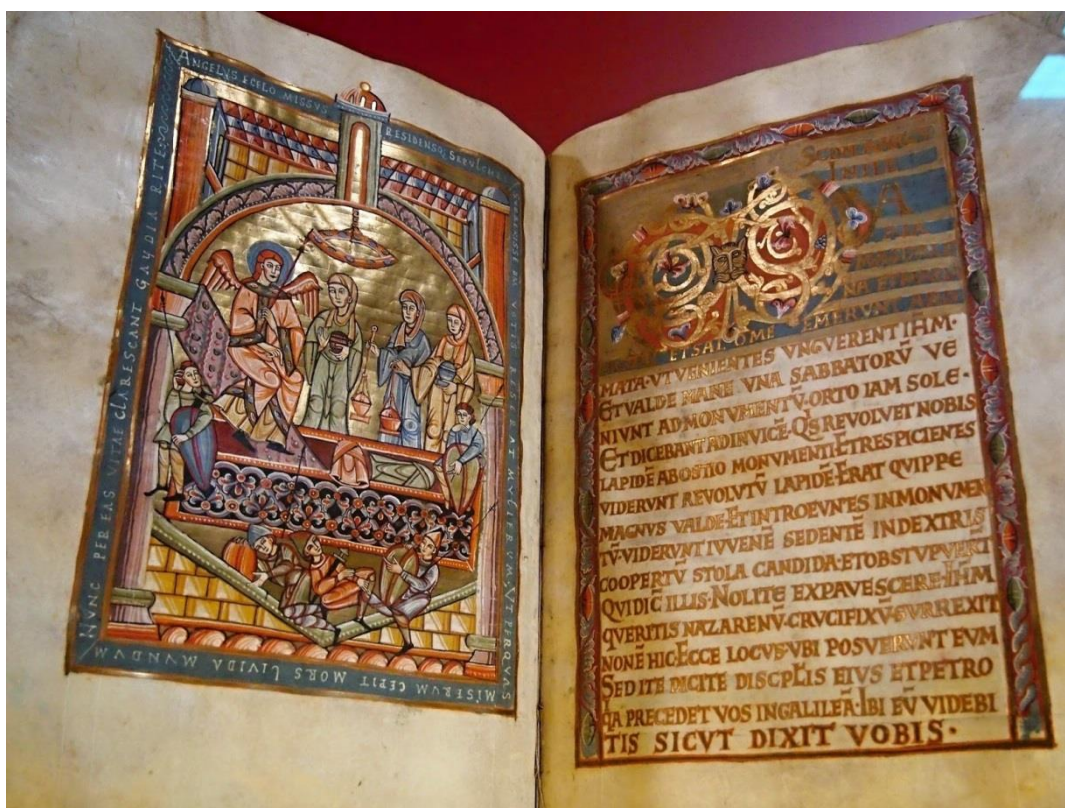 ANGELVS E CELO MISSVS RESIDENSQ;
RESERAT MVLIERVM. VT PER QVAS
MISERVM CEPIT MORS LIVIDA MVNDVM
NVNC PER EAS VITAE CLARESCANT GAVDIA RITE
ET SALOME EMERVNT ARO
MATA·VT VENIENTES VNGVERENT IH̄M·
ET VALDE MANE VNA SABBATORV̄ VE
NIVNT AD MONVMENTV̄·ORTO IAM SOLE·
ET DICEBANT AD INVICĒ·Q̄S REVOLVET NOBIS
LAPIDĒ AB OSTIO MONVMENTI·ET RESPICIENTES
VIDERVNT REVOLVTV̄ LAPIDĒ·ERAT QVIPPE
MAGNVS VALDE·ET INTROEVNTES IN MONVMEN
TV̄·VIDERVNT IVVENĒ SEDENTĒ IN DEXTRIS
COOPERTV̄ STOLA CANDIDA·ET OBSTVPVERT̄
QVI DIC̄ ILLIS·NOLITE EXPAVESCERE·IH̄M
QVERITIS NAZARENV̄·CRVCIFIXV̄·SVRREXIT
NON Ē HIC·ECCE LOCVS·VBI POSVERVNT EVM
SED ITE DICITE DISCPL̄IS EIVS ET PETRO
Q̄A PRECEDET VOS IN GALILEĀ·IBI EV̄ VIDEBI
TIS SICVT DIXIT VOBIS·